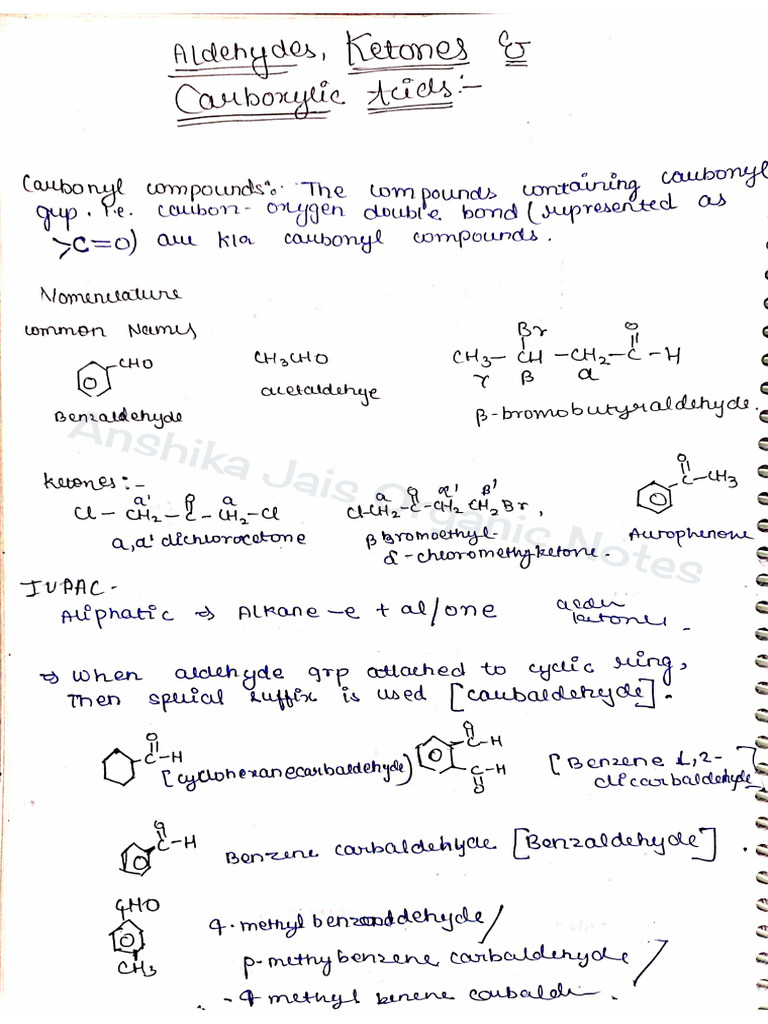 Aldehydes, Ketones &
Carboxylic Acids :-
Carbonyl compounds :- The compounds containing carbonyl
grp. i.e. carbon-oxygen double bond (represented as
>C=O) are k/a carbonyl compounds.
Nomenclature
Common Names
CHO
Benzaldehyde
CH3CHO
acetaldehye
Br O
CH3-CH-CH2-C-H
γ β α
β-bromobutyraldehyde.
Ketones :-
α' O α
Cl-CH2-C-CH2-Cl
α,α' dichloroacetone
α O α' β'
Cl-CH2-C-CH2 CH2Br,
β bromoethyl-
α-chloromethyketone.
O
C-CH3
Acetophenone
IUPAC-
Aliphatic ⇒ Alkane -e + al/one
ketones
⇒ When aldehyde grp attached to cyclic ring,
Then special suffix is used [carbaldehyde].
O
C-H
[cyclohexanecarbaldehyde)
O
C-H
C-H
O
[Benzene 1,2-
dicarbaldehyde]
O
C-H
Benzene carbaldehyde [Benzaldehyde].
CHO
CH3
4-methyl
p-methybenzene carbaldehyde/
-4 methyl
Anshika Jais Organic Notes